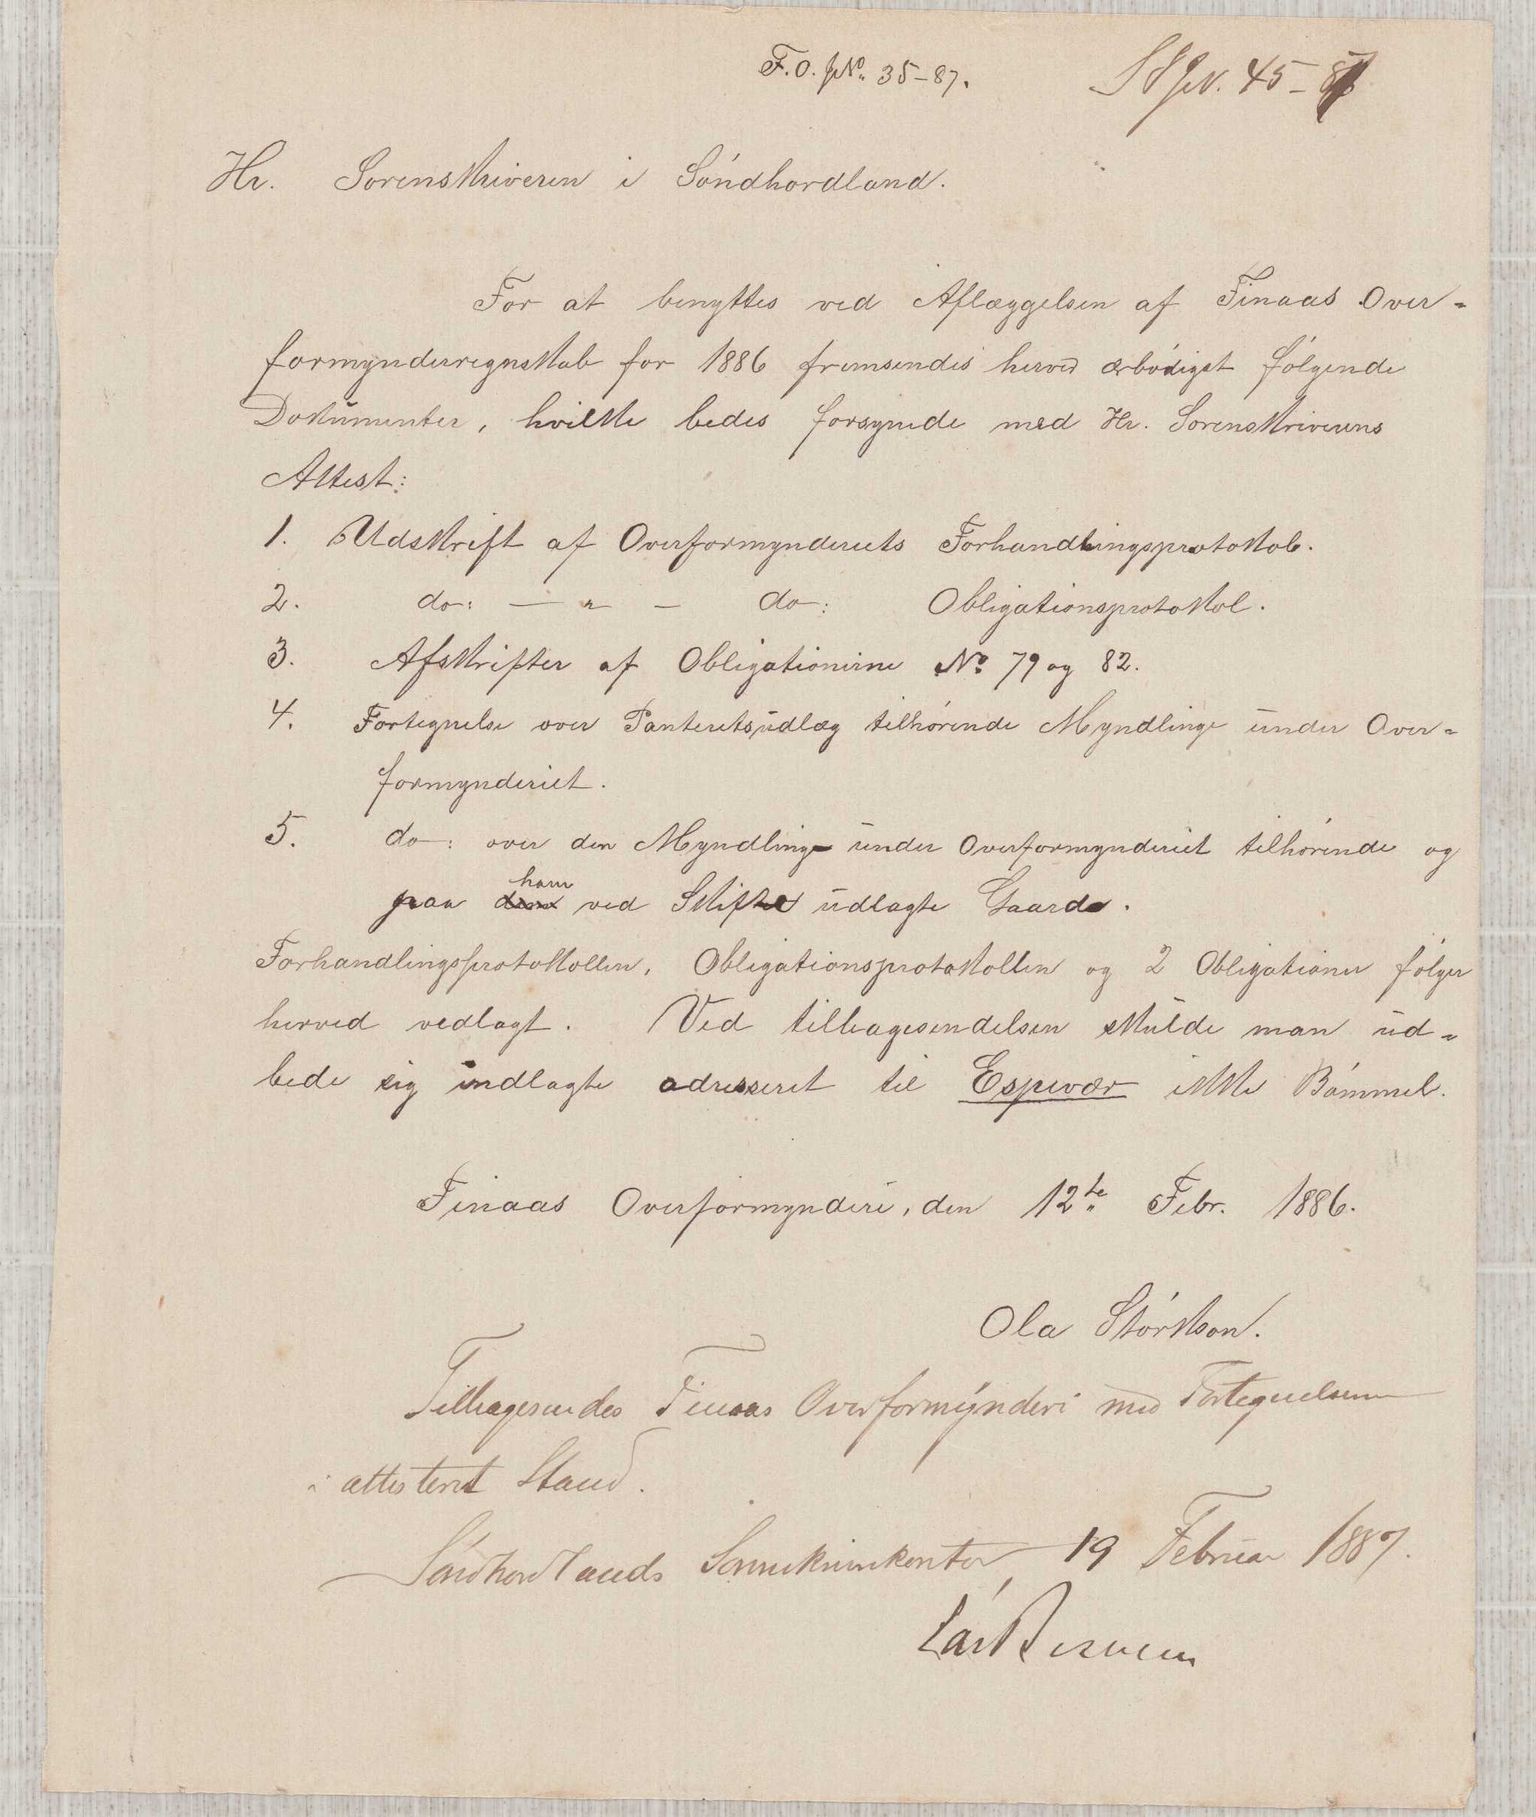 F.O. JN: 35-87.
SS JN. 45-87
Hr. Sorenskriveren i Söndhordland.
For at benyttes ved Aflæggelsen af Finaas Over-
formynderregnskab for 1886 fremsendes herved ærbödigst fölgende
Dokumenter, hvilke bedes forsynede med Hr. Sorenskriverens
Attest:
1. Udskrift af Overformynderiets Forhandlingsprotokol.
2. do: — " — do: Obligationsprotokol.
3. Afskrifter af Obligationerne No 79 og 82.
4. Fortegnelse over Panteretsudlæg tilhörende Myndlinge under Over-
formynderiet.
5. do: over den Myndling under Overformynderiet tilhörende og
paa ham ved Skifte udlagte Gaard.
Forhandlingsprotokollen, Obligationsprotokollen og 2 Obligationer fölger
herved vedlagt. Ved tilbagesendelsen skulde man ud-
bede sig indlagte adresseret til Espevær ikke Bömmel.
Finaas Overformynderi, den 12te Febr. 1886.
Ola Störkson.
Tilbagesendes Finaas Overformynderi med Fortegnelserne
i attesteret Stand.
Söndhordlands Sorenskriverkontor 19 Februar 1887.